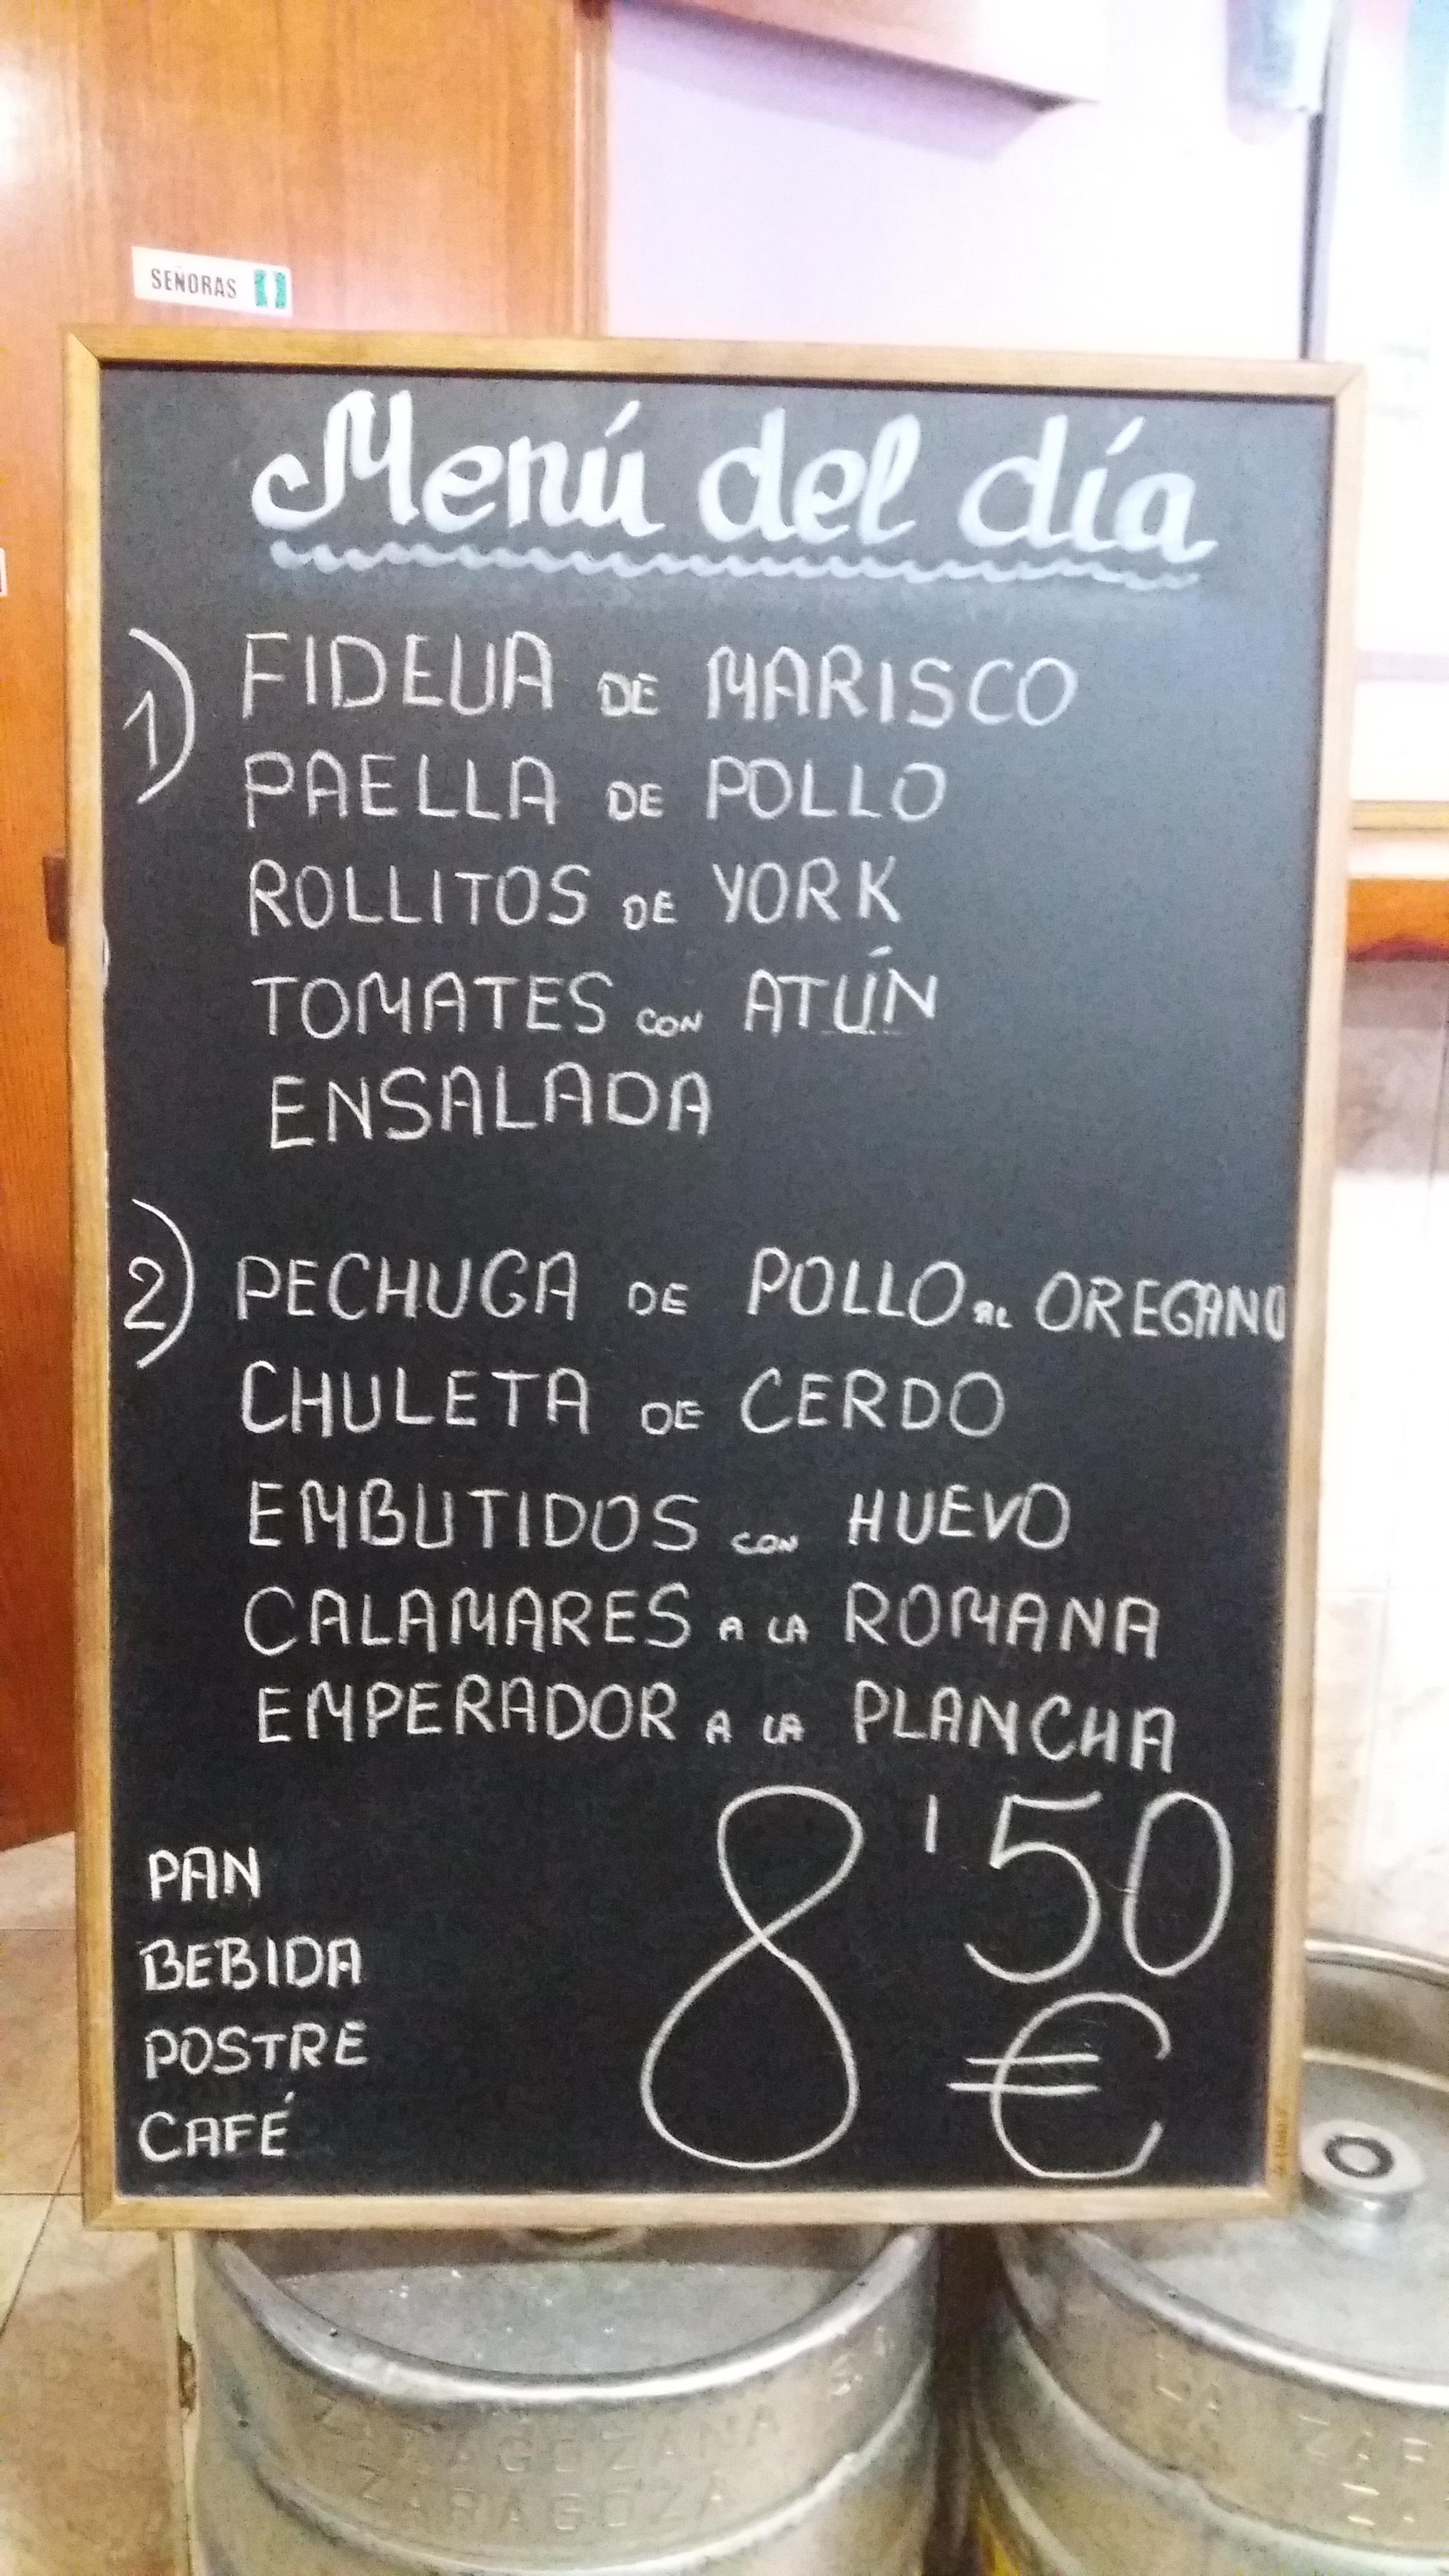 SEÑORAS
Menú del día
1) FIDEUA DE MARISCO
PAELLA DE POLLO
ROLLITOS DE YORK
TOMATES CON ATÚN
ENSALADA
2) PECHUGA DE POLLO AL OREGANO
CHULETA DE CERDO
EMBUTIDOS CON HUEVO
CALAMARES A LA ROMANA
EMPERADOR A LA PLANCHA
8'50
€
PAN
BEBIDA
POSTRE
CAFÉ
ZARAGOZANA
ZARAGOZA
LA ZAR